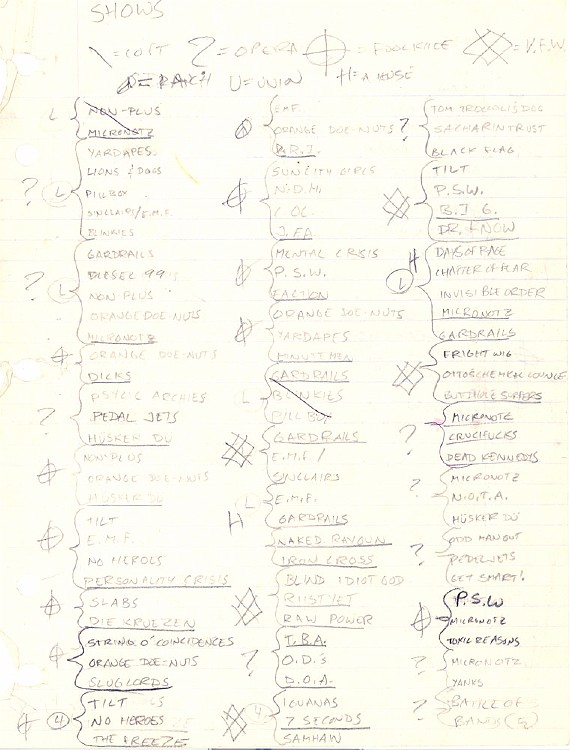 SHOWS
\ = LOFT ? = OPERA = FOOLKILLER = V.F.W.
U = UNION H = A HOUSE
L NON-PLUS
MICRONOTZ
YARDAPES
LIONS & DOGS
? L PILLBOX
SINCLAIRS/E.M.F.
BLINKIES
GARDRAILS
DIESEL 99
? L NON-PLUS
ORANGE DOE-NUTS
MICRONOTZ
ORANGE DOE-NUTS
DICKS
PSYCIC ARCHIES
? PEDAL JETS
HÜSKER DÜ
NON-PLUS
ORANGE DOE-NUTS
HÜSKER DÜ
TILT
E.M.F.
NO HEROES
PERSONALITY CRISIS
SLABS
DIE KRUEZEN
STRING O' COINCIDENCES
ORANGE DOE-NUTS
SLUGLORDS
TILT
4 NO HEROES
THE FREEZE
E.M.F.
ORANGE DOE-NUTS
D.R.I.
SUN CITY GIRLS
N.D.H.
J.F.A
MENTAL CRISIS
P.S.W.
FACTION
ORANGE DOE-NUTS
YARDAPES
MINUTEMEN
GARDRAILS
L BLINKIES
PILLBOX
GARDRAILS
E.M.F./
SINCLAIRS
L E.M.F.
GARDRAILS
H NAKED RAYGUN
IRON CROSS
BLIND IDIOT GOD
RIISTYET
RAW POWER
T.B.A.
? O.D.'S
D.O.A.
4 IGUANAS
7 SECONDS
SAMHAIN
TOM TROCCOLI'S DOG
? SACHARIN TRUST
BLACK FLAG
TILT
P.S.W.
DR. KNOW
H DAYS OF RAGE
CHAPTER OF FEAR
L INVISIBLE ORDER
MICRONOTZ
GARDRAILS
FRIGHT WIG
OTTOS CHEMICAL LOUNGE
BUTTHOLE SURFERS
MICRONOTZ
? CRUCIFUCKS
DEAD KENNEDYS
MICRONOTZ
? N.O.T.A.
HÜSKER DÜ
ODD MAN OUT
? PEDELJETS
GET SMART!
P.S.W
MICRONOTZ
TOXIC REASONS
? MICRONOTZ
YANKS
? BATTLE OF
BANDS